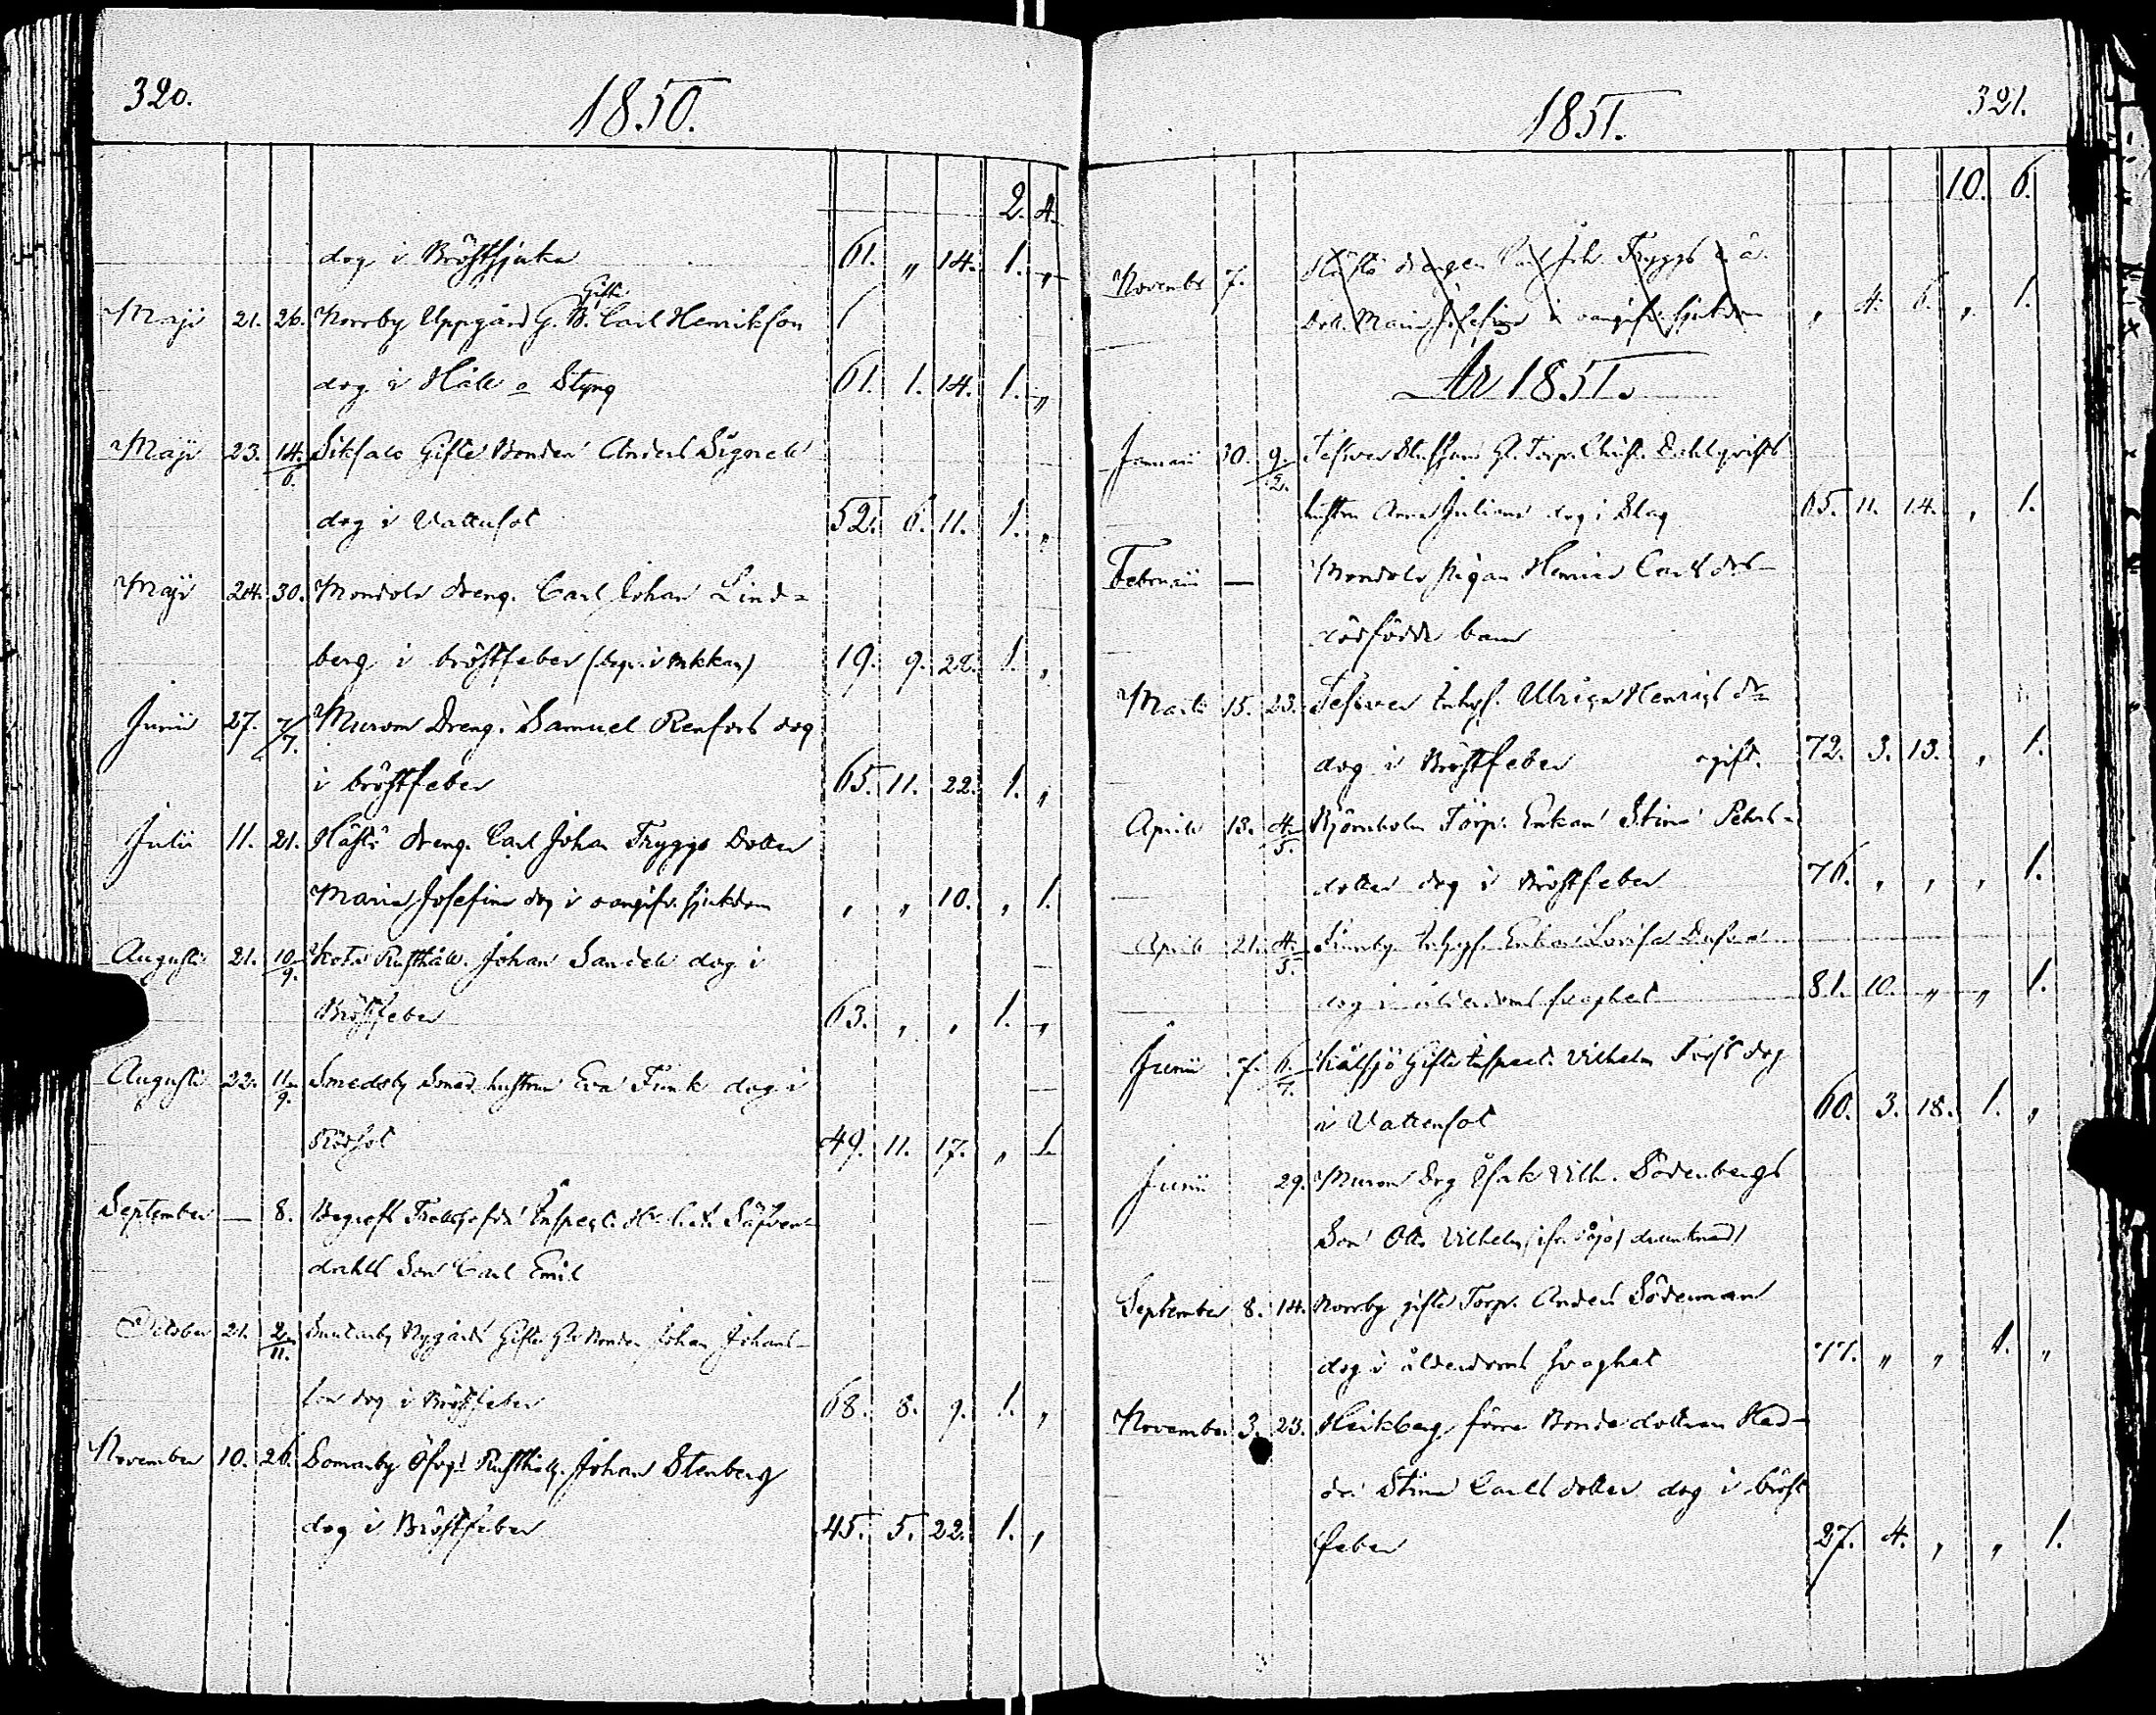 320.
1850.
2. 4.
dog i Bröstsjuka 61. " 14. 1. "
Maji 21. 26. Norrby Uppgård G. B. Gifte Carl Henrikson
dog i Håll o Styng 61. 1. 14. 1. "
Maji 23. 14/6. Siksalo Gifte Bonden Anders Signell
dog i Vattusot 52. 6. 11. 1. "
Maji 24. 30. Mondola dreng. Carl Johan Lind-
berg i bröstfeber (begr. i ) 19. 9. 28. 1. "
Junii 27. 7/7. Murom Dreng. Samuel Renfors dog
i bröstfeber 65. 11. 22. 1. "
Julii 11. 21. Hästö dreng. Carl Johan Tryggs Dotter
Maria Josefina dog i oangifv. sjukdom " " 10. " 1.
Augusti 21. 10/9. Rusthåll. Johan Sandell dog i
Bröstfeber 63. " " 1. "
Augusti 22. 11/9. Smedsby Smed. hustrun Eva Funk dog i
Rödsot 49. 11. 17. " 1.
September — 8. Begrofs Inspect. Säfven-
dahls Son Carl Emil
October 21. 2/11. Nygårds Gifte Bonden Johan Johans-
son dog i Bröstfeber 68. 8. 9. 1. "
November 10. 26. Somarby Öfvg. Rusthåll. Johan Stenberg
dog i Bröstfeber 45. 5. 22. 1. "
1851.
321.
10. 6.
Novembr 7. Hästö drengen Carl Joh. Tryggs
Dott. Maria Josefina i oangifv. sjukdom " 4. 6. " 1.
År 1851.
Januarii 30. 9/2. Torp. Christ. Dahlqvists
hustru Anna Juliana dog i Slag 65. 11. 14. " 1.
Februarii — Mondola pigan Henrica Carlsdrs
dödfödde barn
Martii 15. 23. Inhys. Ulrica Henriks dr
dog i Bröstfeber ogift. 72. 3. 13. " 1.
Aprill 13. 4/5. Björnholm Torp. Enkan Stina Peters-
dotter dog i Bröstfeber 76. " " " 1.
Aprill 21. 4/5. Inhys. Enkan Lovisa
dog i ålderdoms svaghet 81. 10. " " 1.
Junii 7. 6/7. Gifte Inspect. Vilhelm dog
i Vattensot 60. 3. 18. 1. "
Junii 29. Murom Drg Isak Vilh. Söderbergs
Son Otto Vilhelm drunknad)
September 8. 14. Norrby gifte Torp. Anders Söderman
dog i ålderdoms svaghet 77. " " 1. "
November 3. 23. Heikberg förre Bonde dottren Hed-
da Stina Carls dotter dog i bröst
feber 27. 4. " " 1.